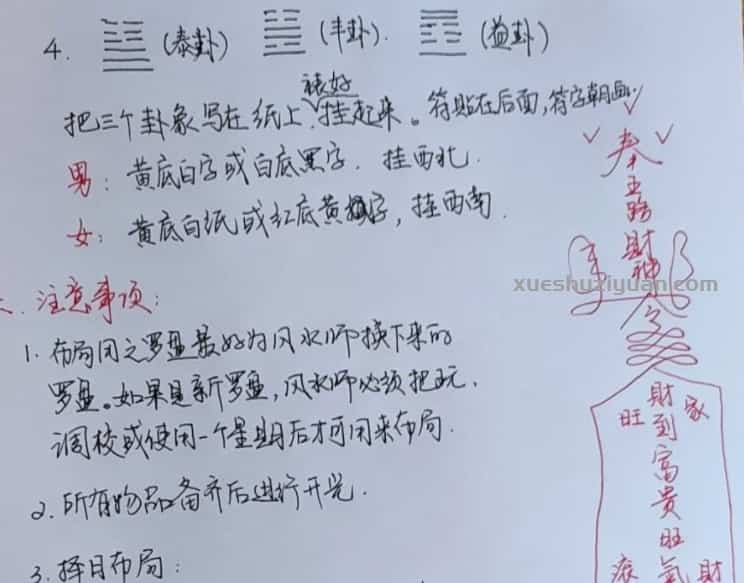 4. (泰卦) (丰卦). (益卦)
裱好
把三个卦象写在纸上,挂起来。符贴在后面,符字朝画.
男: 黄底白字或白底黑字. 挂西北.
女: 黄底白纸或红底黄字, 挂西南.
注意事项:
1. 布局用之罗盘最好为风水师换下来的
罗盘。如果是新罗盘,风水师必须把玩.
调校或使用一个星期后才可用来布局.
2. 所有物品备齐后进行开光.
3. 择日布局:
奉
五
路
財
神
令
財
到
富
貴
旺
氣
旺
家
財
xueshuziyuan.com